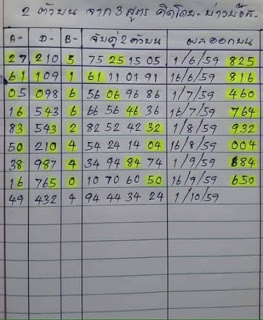 2 ตัวบน จาก 3 สูตร คิดโดย-บ่าวน้อย
A+ D- B- จับคู่ 2 ตัวบน ผลออกบน
27 210 5 75 25 15 05 1/6/59 825
61 109 1 61 11 01 91 16/6/59 816
05 098 6 56 06 96 86 1/7/59 460
16 543 6 66 56 46 36 16/7/59 764
83 543 2 82 52 42 32 1/8/59 932
50 210 4 54 24 14 04 16/8/59 004
38 987 4 34 94 84 74 1/9/59 684
16 765 0 10 70 60 50 16/9/59 650
49 432 4 94 44 34 24 1/10/59